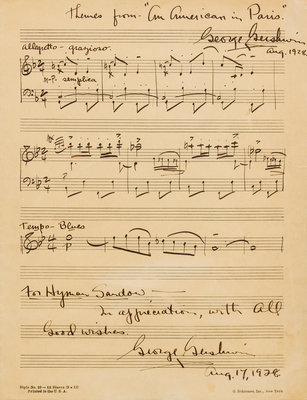 Themes from "An American in Paris".
George Gershwin
Aug. 1928
Allegretto - grazioso.
semplice
Tempo - Blues
For Hyman Sandow —
In appreciation, with all
Good wishes.
George Gershwin
Aug. 17, 1928.
Style No. 20 — 12 Staves
Printed in the U. S. A.
G. Schirmer, Inc., New York